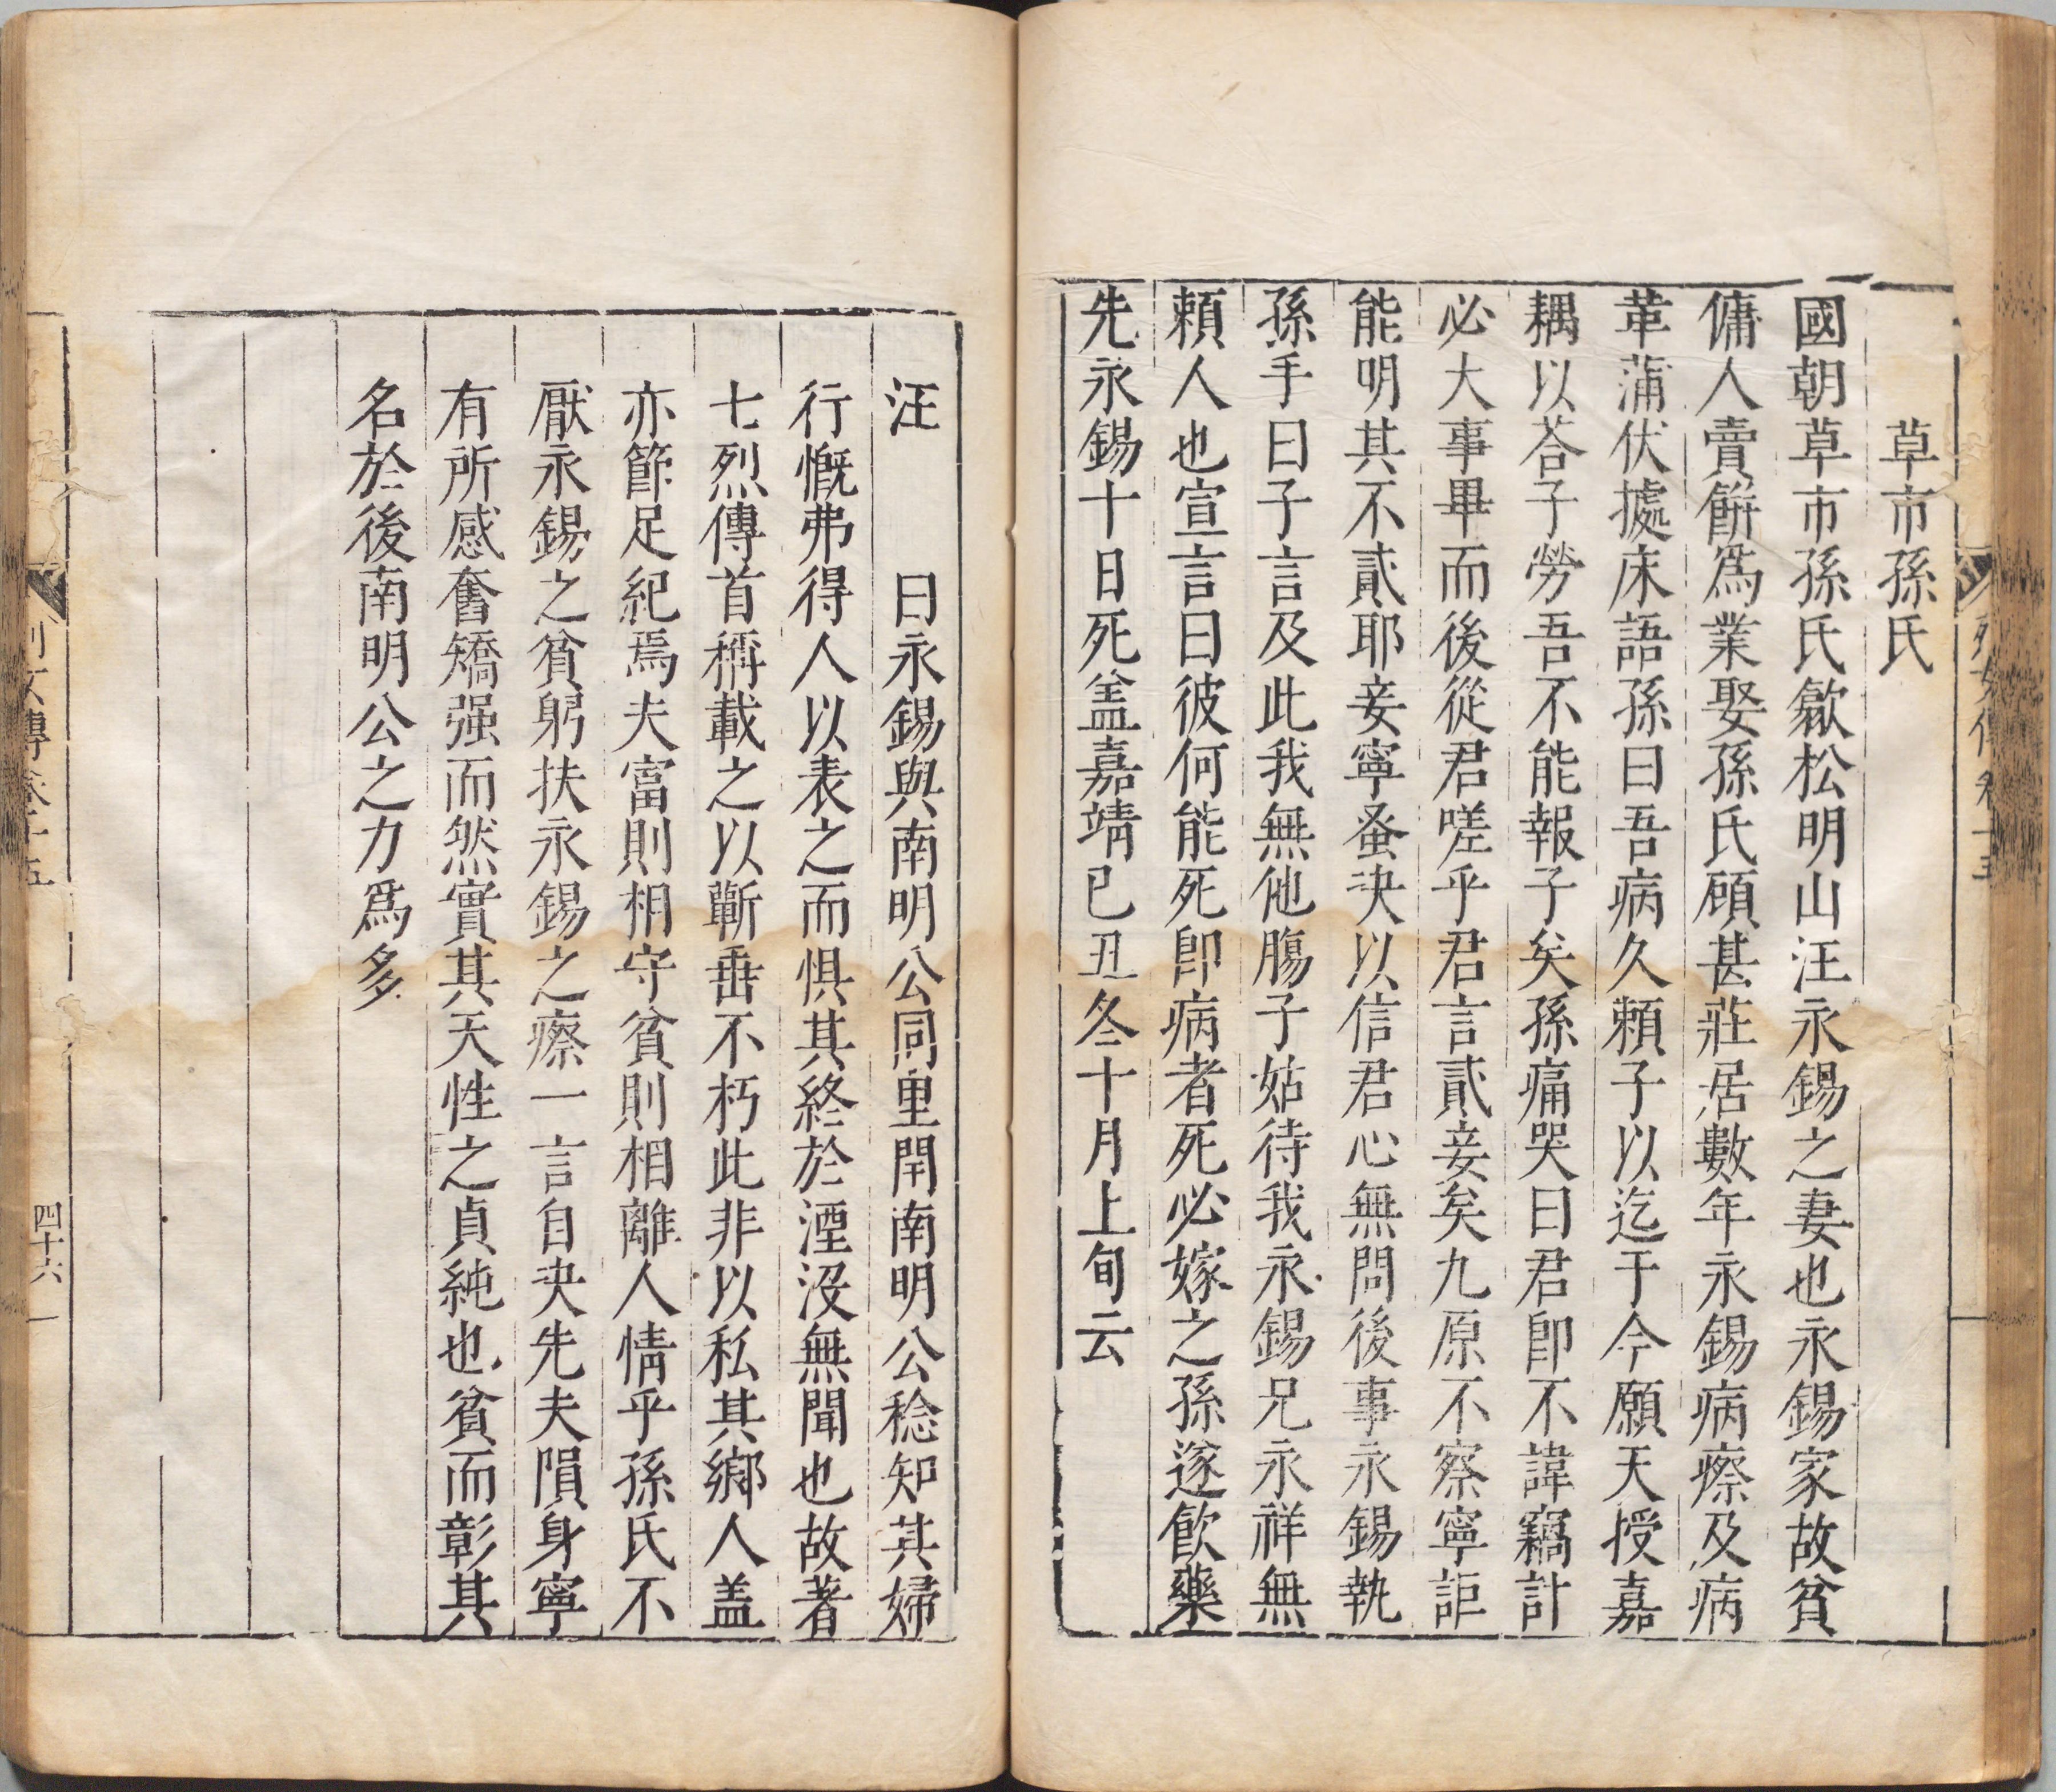 草市孫氏
國朝草市孫氏歙松明山汪永錫之妻也永錫家故貧
傭人賣餅爲業娶孫氏頋甚莊居數年永錫病瘵及病
革蒲伏據床語孫曰吾病久頼子以迄于今願天授嘉
耦以荅子勞吾不能報子矣孫痛哭曰君卽不諱竊計
必大事畢而後從君嗟乎君言貳妾矣九原不察寧詎
能明其不貳耶妾寧蚤决以信君心無問後事永錫執
孫手曰子言及此我無他膓子姑待我永錫兄永祥無
頼人也宣言曰彼何能死卽病者死必嫁之孫遂飮藥
先永錫十日死盖嘉靖已丑冬十月上旬云
汪　　曰永錫與南明公同里閈南明公稔知其婦
行慨弗得人以表之而惧其終於湮沒無聞也故著
七烈傳首稱載之以蘄垂不朽此非以私其鄉人盖
亦節足紀焉夫富則相守貧則相離人情乎孫氏不
厭永錫之貧躬扶永錫之瘵一言自决先夫隕身寧
有所感奮矯强而然實其天性之貞純也貧而彰其
名於後南明公之力爲多
四十六